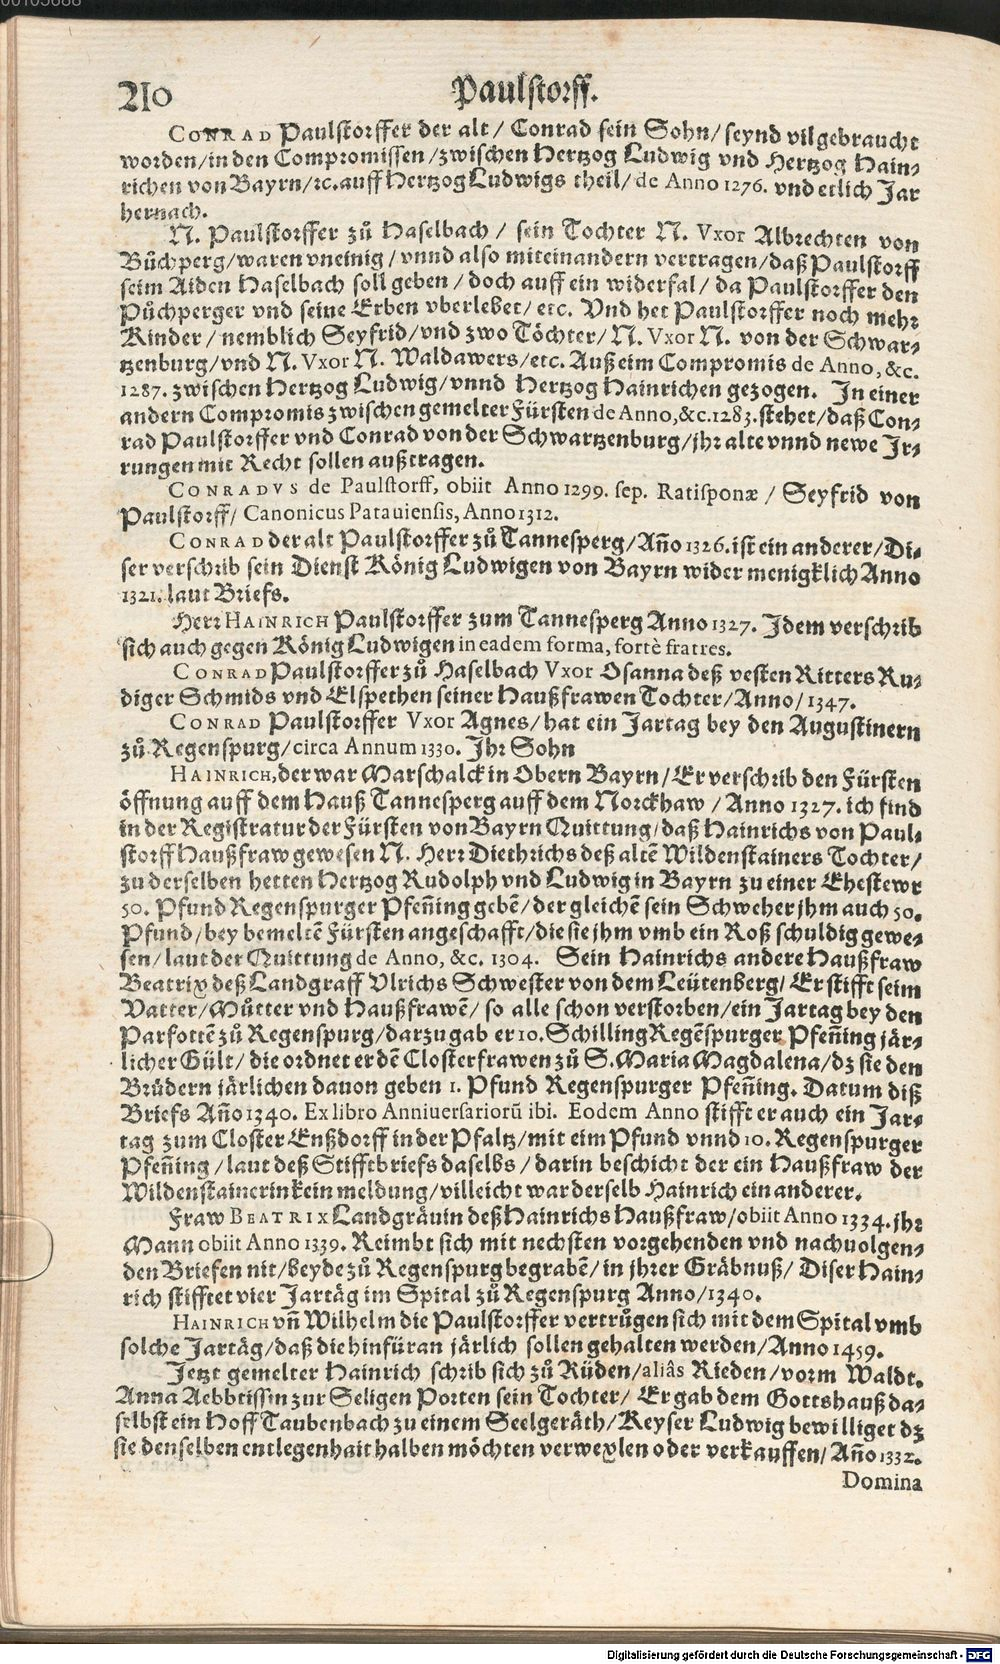 210 Paulstorff.
CONRAD Paulstorffer der alt / Conrad sein Sohn / seynd vil gebraucht
worden / in den Compromissen / zwischen Hertzog Ludwig vnd Hertzog Hain⸗
richen von Bayrn / ꝛc. auff Hertzog Ludwigs theil / de Anno 1276. vnd etlich Jar
hernach.
N. Paulstorffer zů Haselbach / sein Tochter N. Vxor Albrechten von
Bůchperg / waren vneinig / vnnd also miteinandern vertragen / daß Paulstorff
seim Aiden Haselbach soll geben / doch auff ein widerfal / da Paulstorffer den
Půchperger vnd seine Erben vberlebet / etc. Vnd het Paulstorffer noch mehr
Kinder / nemblich Seyfrid / vnd zwo Töchter / N. Vxor N. von der Schwar⸗
tzenburg / vnd N. Vxor N. Waldawers / etc. Auß eim Compromis de Anno, &c.
1287. zwischen Hertzog Ludwig / vnnd Hertzog Hainrichen gezogen. In einer
andern Compromis zwischen gemelter Fürsten de Anno, &c. 1283. stehet / daß Con⸗
rad Paulstorffer vnd Conrad von der Schwartzenburg / jhr alte vnnd newe Ir⸗
rungen mit Recht sollen außtragen.
CONRADVS de Paulstorff, obiit Anno 1299. sep. Ratisponæ / Seyfrid von
Paulstorff / Canonicus Patauiensis, Anno 1312.
CONRAD der alt Paulstorffer zů Tannesperg / Año 1326. ist ein anderer / Di⸗
ser verschrib sein Dienst König Ludwigen von Bayrn wider menigklich Anno
1321. laut Briefs.
Herr HAINRICH Paulstorffer zum Tannesperg Anno 1327. Idem verschrib
sich auch gegen König Ludwigen in eadem forma, fortè fratres.
CONRAD Paulstorffer zů Haselbach Vxor Osanna deß vesten Ritters Ru⸗
diger Schmids vnd Elspethen seiner Haußfrawen Tochter / Anno / 1347.
CONRAD Paulstorffer Vxor Agnes / hat ein Jartag bey den Augustinern
zů Regenspurg / circa Annum 1330. Ihr Sohn
HAINRICH, der war Marschalck in Obern Bayrn / Er verschrib den Fürsten
öffnung auff dem Hauß Tannesperg auff dem Norckhaw / Anno 1327. ich find
in der Registratur der Fürsten von Bayrn Quittung / daß Hainrichs von Paul⸗
storff Haußfraw gewesen N. Herr Diethrichs deß altẽ Wildenstainers Tochter /
zu derselben hetten Hertzog Rudolph vnd Ludwig in Bayrn zu einer Ehestewr
50. Pfund Regenspurger Pfeñing gebẽ / der gleichẽ sein Schweher jhm auch 50.
Pfund / bey bemeltẽ Fürsten angeschafft / die sie jhm vmb ein Roß schuldig gewe⸗
sen / laut der Quittung de Anno, &c. 1304. Sein Hainrichs andere Haußfraw
Beatrix deß Landgraff Vlrichs Schwester von dem Leütenberg / Er stifft seim
Vatter / Můtter vnd Haußfrawẽ / so alle schon verstorben / ein Jartag bey den
Parfottẽ zů Regenspurg / darzu gab er 10. Schilling Regẽspurger Pfeñing jär⸗
licher Gült / die ordnet er dẽ Closterfrawen zů S. Maria Magdalena / dz sie den
Brüdern järlichen dauon geben 1. Pfund Regenspurger Pfeñing. Datum diß
Briefs Año 1340. Ex libro Anniuersariorũ ibi. Eodem Anno stifft er auch ein Jar⸗
tag zum Closter Enßdorff in der Pfaltz / mit eim Pfund vnnd 10. Regenspurger
Pfeñing / laut deß Stifftbriefs daselbs / darin beschicht der ein Haußfraw der
Wildenstainerin kein meldung / villeicht war derselb Hainrich ein anderer.
Fraw BEATRIX Landgrävin deß Hainrichs Haußfraw / obiit Anno 1334. jhr
Mann obiit Anno 1339. Reimbt sich mit nechsten vorgehenden vnd nachuolgen⸗
den Briefen nit / beyde zů Regenspurg begrabẽ / in jhrer Gräbnuß / Diser Hain⸗
rich stifftet vier Jartäg im Spital zů Regenspurg Anno / 1340.
HAINRICH vñ Wilhelm die Paulstorffer vertrůgen sich mit dem Spital vmb
solche Jartäg / daß die hinfüran järlich sollen gehalten werden / Anno 1459.
Jetzt gemelter Hainrich schrib sich zů Rüden / aliâs Rieden / vorm Waldt.
Anna Aebbtissin zur Seligen Porten sein Tochter / Er gab dem Gottshauß da⸗
selbst ein Hoff Taubenbach zu einem Seelgeräth / Keyser Ludwig bewilliget dz
sie denselben entlegenhait halben möchten verwexlen oder verkauffen / Año 1332.
Domina
Digitalisierung gefördert durch die Deutsche Forschungsgemeinschaft - DFG